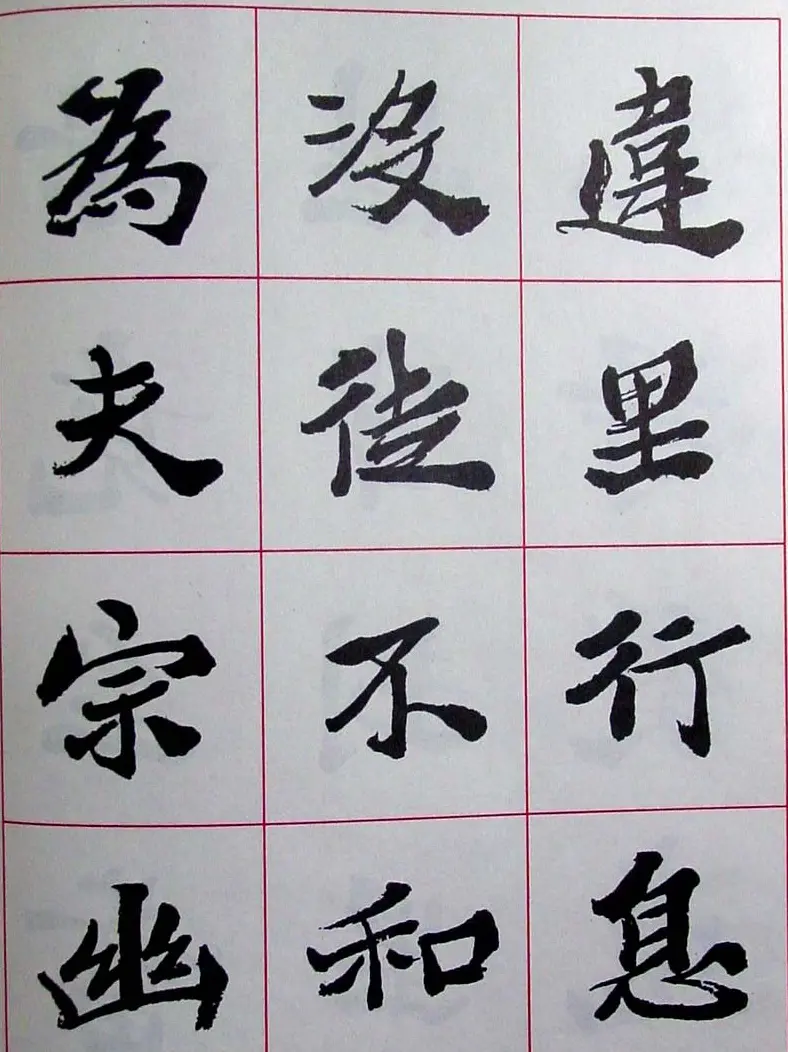 違里行息
没徒不和
為夫宗幽